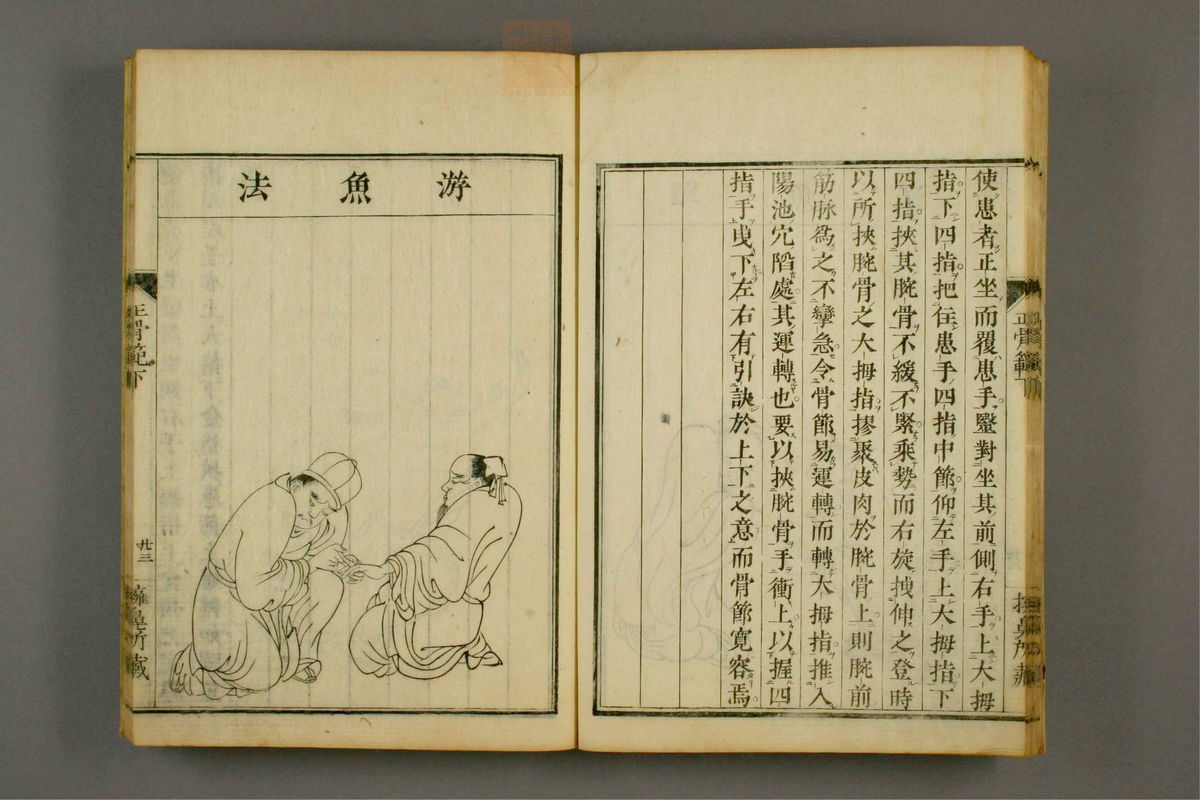 使患者正坐而覆患手毉對坐其前側右手上大拇
指下四指把住患手四指中節仰左手上大拇指下
四指挾其腕骨不緩不緊乘勢而右旋拽伸之登時
以所挾腕骨之大拇指摎聚皮肉於腕骨上則腕前
筋脉爲之不攣急令骨節易運轉而轉大拇指推入
陽池穴陷處其運轉也要以挾腕骨手衝上以握四
指手曳下左右有引訣於上下之意而骨節寬容焉
正骨範下
游魚法
正骨範下
廿三
擁鼻所藏